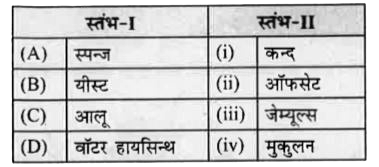 स्तंभ-I स्तंभ-II
(A) स्पन्ज (i) कन्द
(B) यीस्ट (ii) ऑफसेट
(C) आलू (iii) जेम्यूल्स
(D) वॉटर हायसिन्थ (iv) मुकुलन